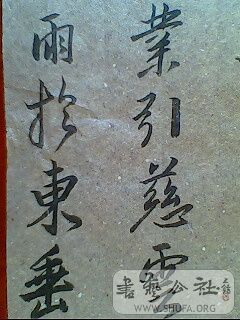 業引慈雲
雨於東垂
書藝公社
WWW.SHUFA.ORG